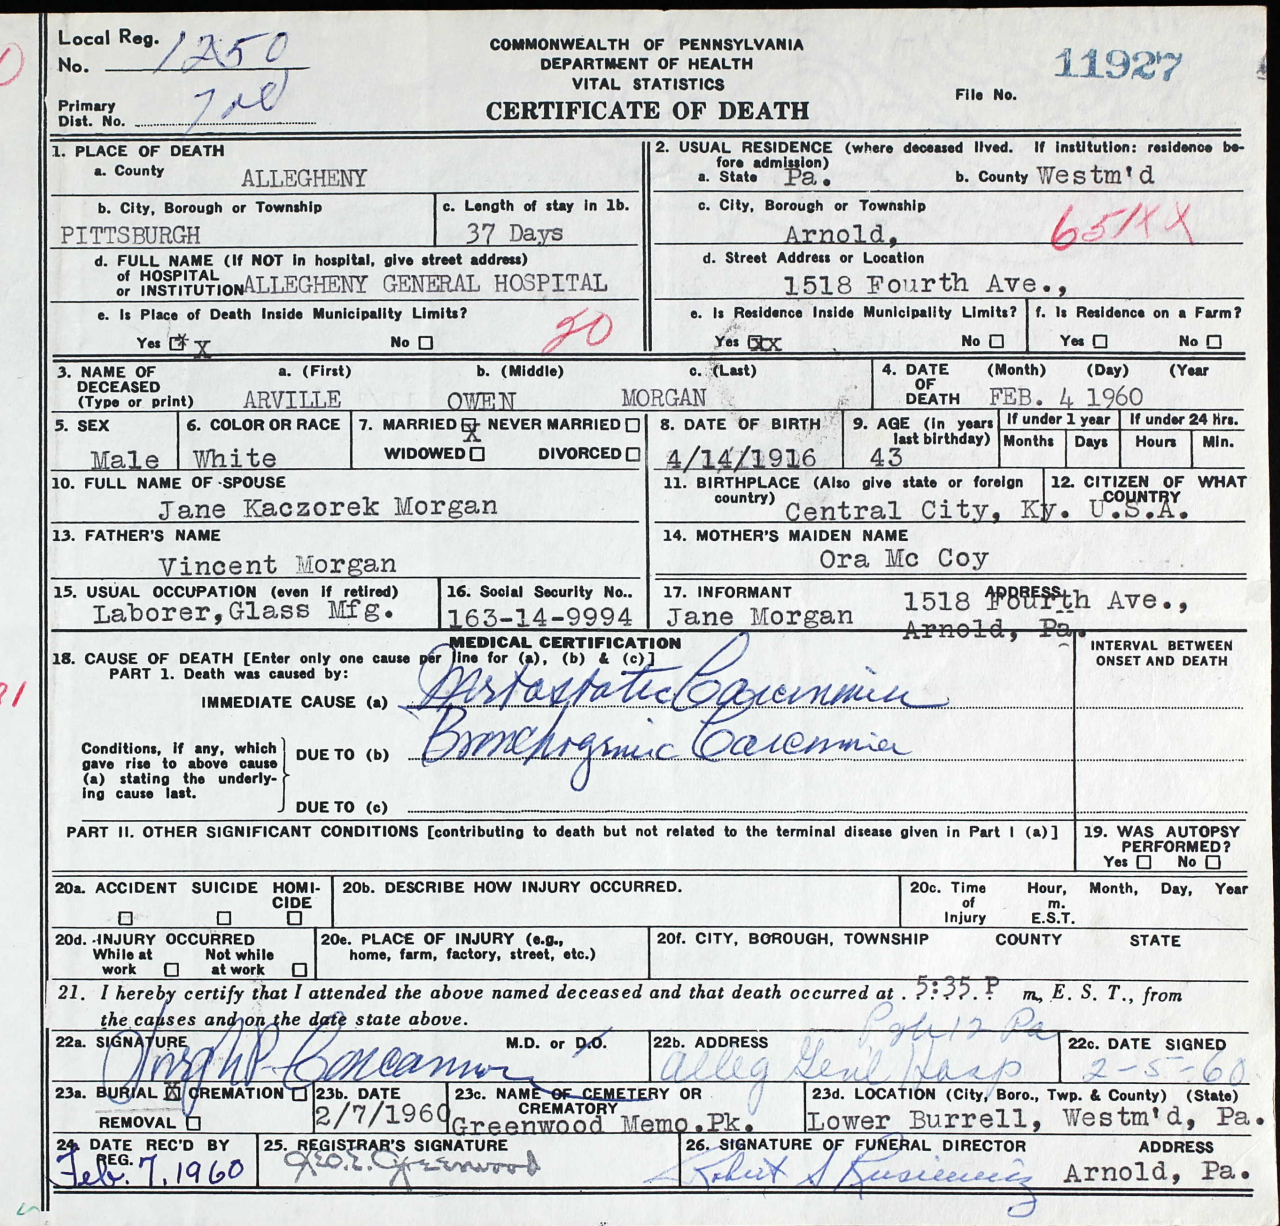 Local Reg. No. 1250
COMMONWEALTH OF PENNSYLVANIA
DEPARTMENT OF HEALTH
VITAL STATISTICS
CERTIFICATE OF DEATH
11927
File No.
Primary Dist. No.
1. PLACE OF DEATH
a. County ALLEGHENY
b. City, Borough or Township PITTSBURGH
c. Length of stay in 1b. 37 Days
d. FULL NAME (If NOT in hospital, give street address)
of HOSPITAL
or INSTITUTION ALLEGHENY GENERAL HOSPITAL
e. Is Place of Death Inside Municipality Limits?
Yes X No
20
2. USUAL RESIDENCE (where deceased lived. If institution: residence be-
fore admission)
a. State Pa. b. County Westm'd
c. City, Borough or Township
Arnold, 651XX
d. Street Address or Location
1518 Fourth Ave.,
e. Is Residence Inside Municipality Limits? f. Is Residence on a Farm?
Yes XX No Yes No
3. NAME OF DECEASED (Type or print)
a. (First) b. (Middle) c. (Last)
ARVILLE OWEN MORGAN
4. DATE OF DEATH (Month) (Day) (Year
FEB. 4 1960
5. SEX Male
6. COLOR OR RACE White
7. MARRIED X NEVER MARRIED
WIDOWED DIVORCED
8. DATE OF BIRTH 4/14/1916
9. AGE (in years last birthday) 43
If under 1 year If under 24 hrs.
Months Days Hours Min.
10. FULL NAME OF SPOUSE
Jane Kaczorek Morgan
11. BIRTHPLACE (Also give state or foreign country)
Central City, Ky.
12. CITIZEN OF WHAT COUNTRY
U.S.A.
13. FATHER'S NAME
Vincent Morgan
14. MOTHER'S MAIDEN NAME
Ora Mc Coy
15. USUAL OCCUPATION (even if retired)
Laborer, Glass Mfg.
16. Social Security No..
163-14-9994
17. INFORMANT ADDRESS
Jane Morgan 1518 Fourth Ave.,
Arnold, Pa.
MEDICAL CERTIFICATION
18. CAUSE OF DEATH [Enter only one cause per line for (a), (b) & (c)]
PART 1. Death was caused by:
INTERVAL BETWEEN
ONSET AND DEATH
IMMEDIATE CAUSE (a) Metastatic Carcinoma
Conditions, if any, which
gave rise to above cause
(a) stating the underly-
ing cause last.
DUE TO (b) Bronchogenic Carcinoma
DUE TO (c)
PART II. OTHER SIGNIFICANT CONDITIONS [contributing to death but not related to the terminal disease given in Part I (a)]
19. WAS AUTOPSY
PERFORMED?
Yes No
20a. ACCIDENT SUICIDE HOMI-
CIDE
20b. DESCRIBE HOW INJURY OCCURRED.
20c. Time of Injury Hour, Month, Day, Year
m.
E.S.T.
20d. INJURY OCCURRED
While at work Not while at work
20e. PLACE OF INJURY (e.g.,
home, farm, factory, street, etc.)
20f. CITY, BOROUGH, TOWNSHIP COUNTY STATE
21. I hereby certify that I attended the above named deceased and that death occurred at 5:35 P m., E. S. T., from
the causes and on the date state above.
22a. SIGNATURE M.D. or D.O.
Joseph P. Concannon
22b. ADDRESS Pgh 12 Pa
Alleg Genl Hosp
22c. DATE SIGNED
2-5-60
23a. BURIAL X CREMATION
REMOVAL
23b. DATE
2/7/1960
23c. NAME OF CEMETERY OR
CREMATORY
Greenwood Memo.Pk.
23d. LOCATION (City, Boro., Twp. & County) (State)
Lower Burrell, Westm'd, Pa.
24. DATE REC'D BY
REG.
Feb. 7, 1960
25. REGISTRAR'S SIGNATURE
Geo. E. Greenwood
26. SIGNATURE OF FUNERAL DIRECTOR ADDRESS
Robert S Arnold, Pa.